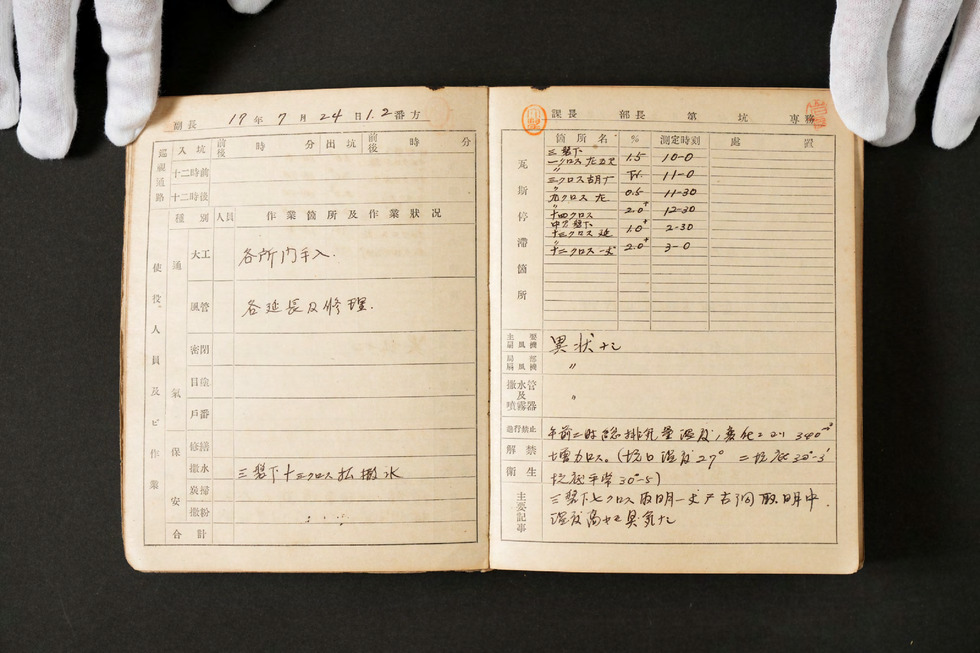 副長 17年7月24日1.2番方
巡視通路 入坑 前後 時 分 出坑 前後 時 分
十二時前
十二時後
使役人員及ビ作業
種別 人員 作業箇所及作業状況
通氣
大工 各所門手入.
風管 各延長及修理.
密閉
目塗
戸番
保安
修繕
撒水 三盤下十三クロス払撒水
炭掃
撒粉
合計
課長 部長 第 坑 専務
瓦斯停滞箇所
箇所名 % 測定時刻 処置
三盤下
一クロス 1.5 10-0
〃
三クロス 11-0
〃
九クロス 0.5 11-30
〃
十四クロス 2.0+ 12-30
十三クロス 延 1.0+ 2-30
〃
十二クロス 2.0+ 3-0
主要扇風機 異状ナシ
局部扇風機 〃
撒水管及噴霧器 〃
進行禁止
解禁
衛生
午前二時 排気量温度 変化 340
増加ロス。(坑口温度27° 二坑底
坑底平常30°-5)
主要記事
三盤下七クロス取明 古洞取明中.
温度高キモ臭気ナシ